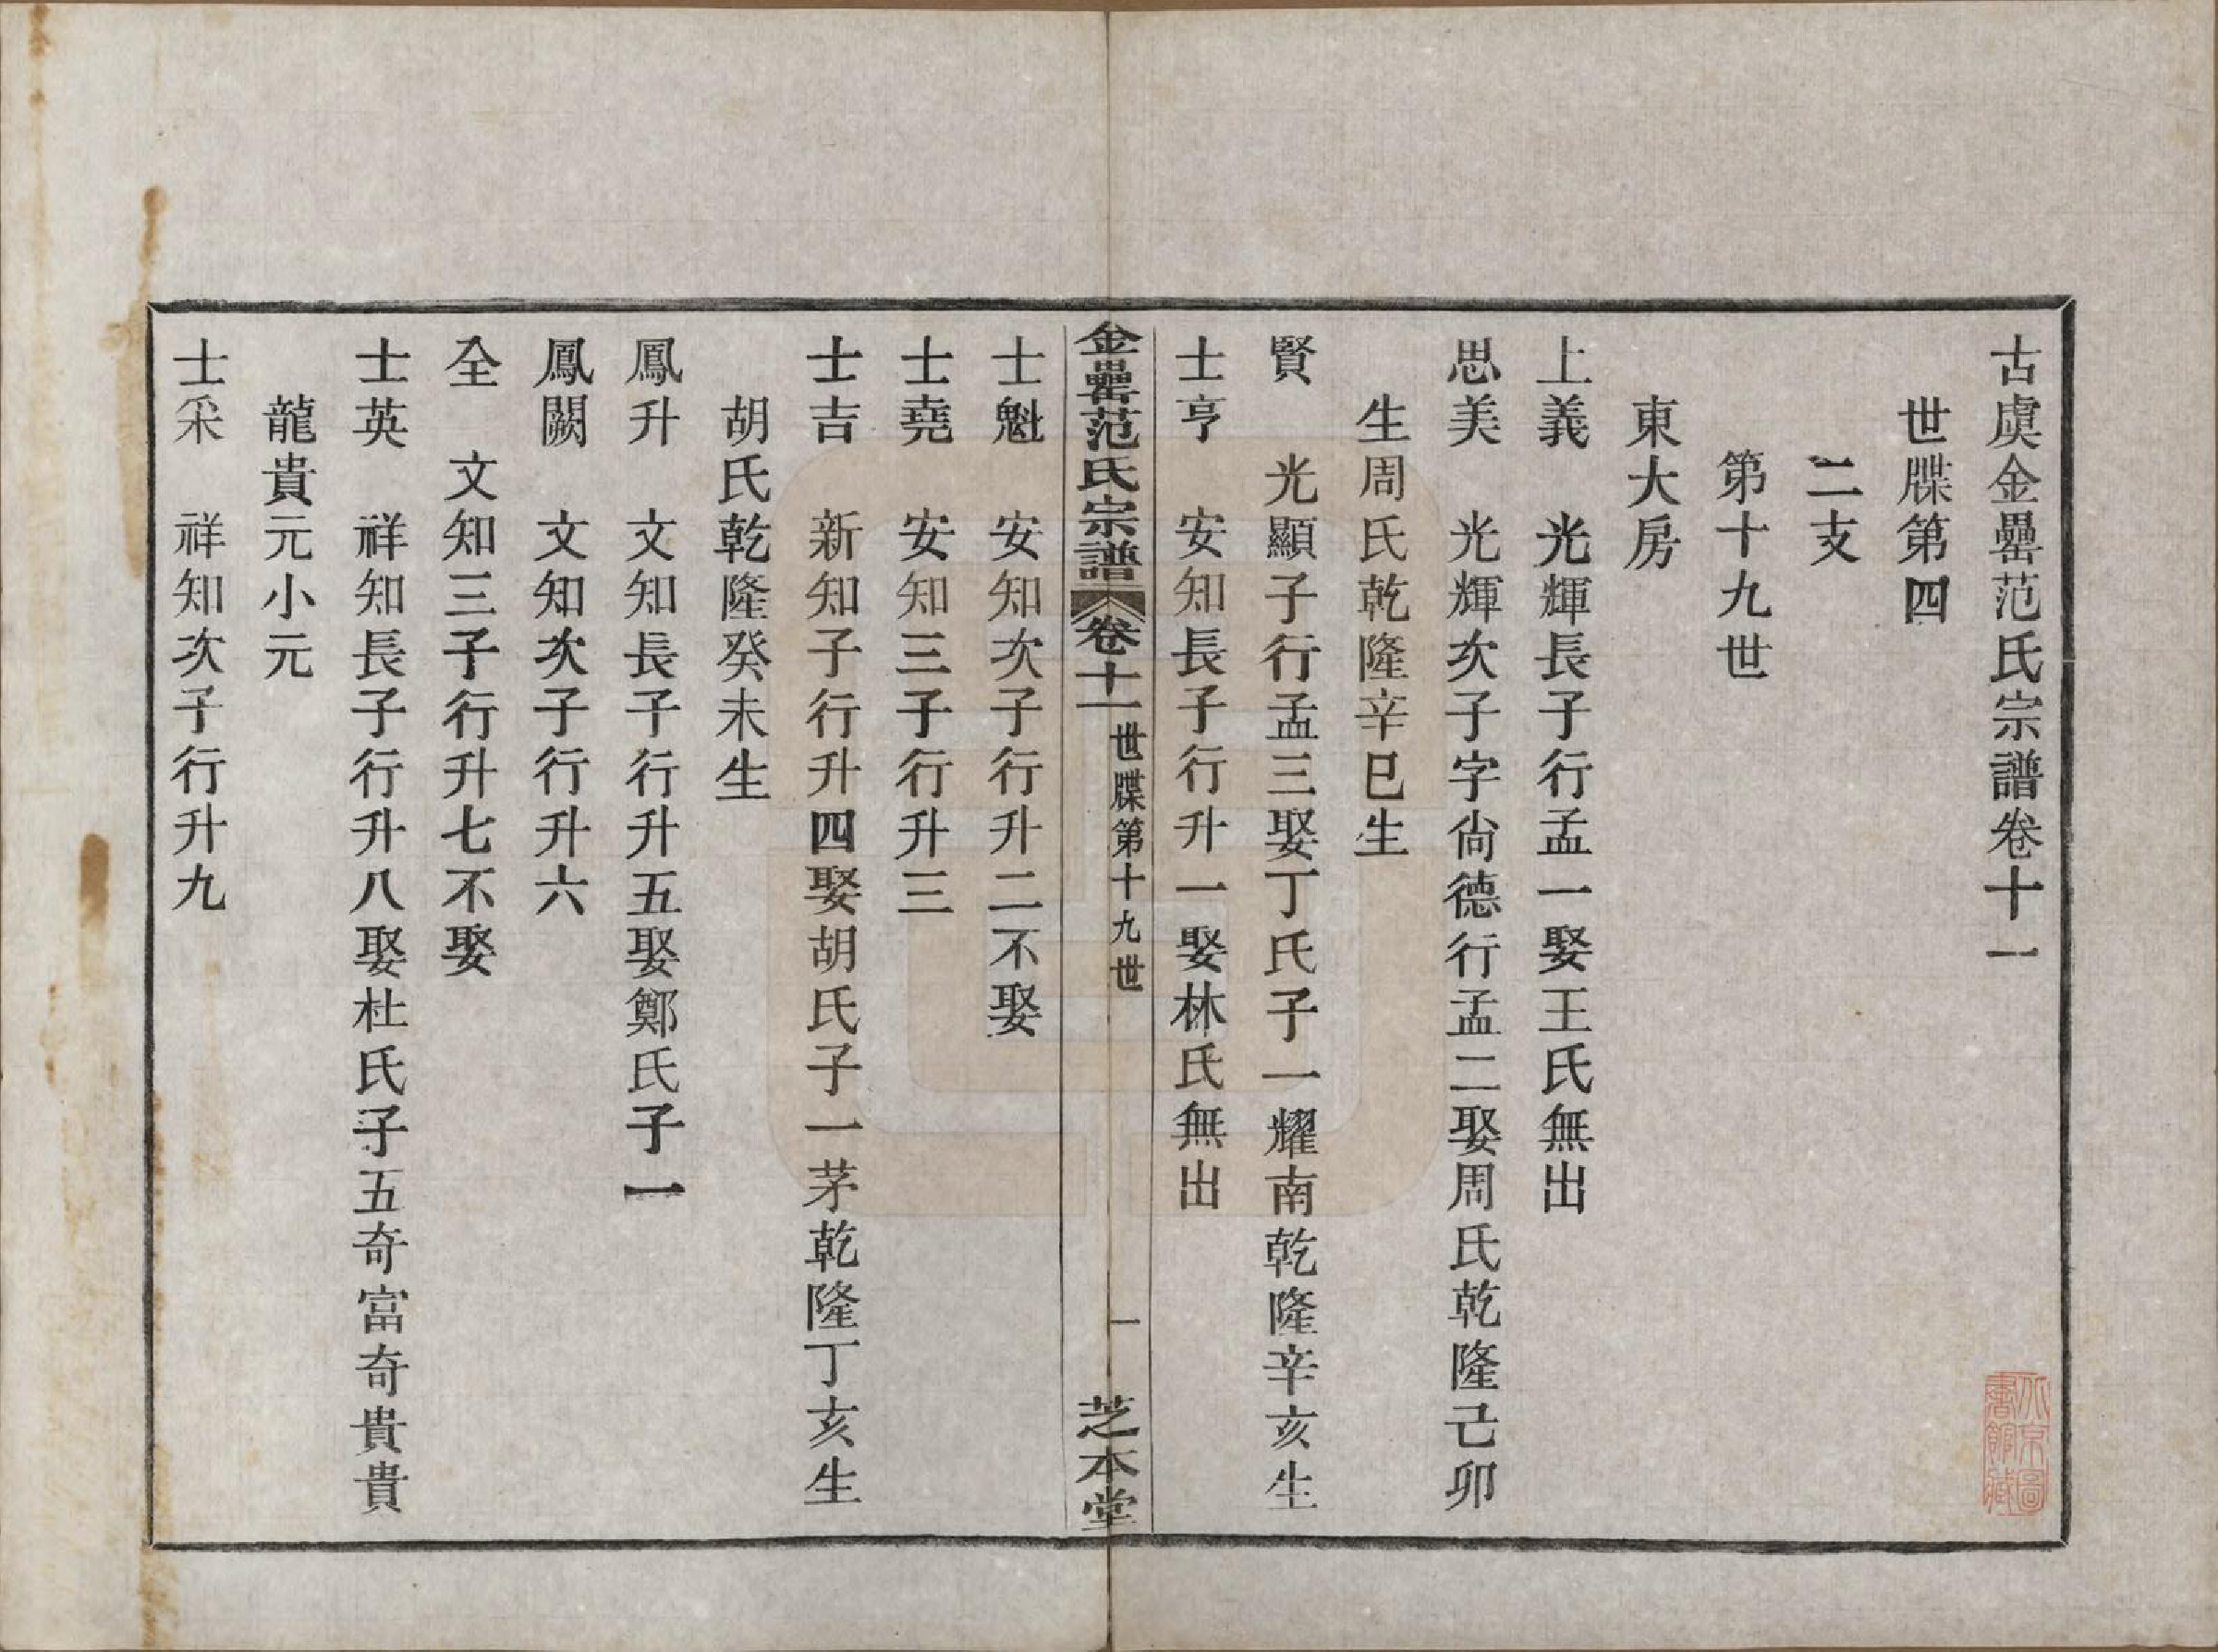 古虞金罍范氏宗譜卷十一
世牒第四
二支
第十九世
東大房
上義　光輝長子行孟一娶王氏無出
思美　光輝次子字尙德行孟二娶周氏乾隆己卯
生周氏乾隆辛巳生
賢　光顯子行孟三娶丁氏子一耀南乾隆辛亥生
士亨　安知長子行升一娶林氏無出
金罍范氏宗譜　卷十一　世牒第十九世　一　芝本堂
士魁　安知次子行升二不娶
士堯　安知三子行升三
士吉　新知子行升四娶胡氏子一茅乾隆丁亥生
胡氏乾隆癸未生
鳳升　文知長子行升五娶鄭氏子一
鳳闕　文知次子行升六
全　文知三子行升七不娶
士英　祥知長子行升八娶杜氏子五奇富奇貴貴
龍貴元小元
士采　祥知次子行升九